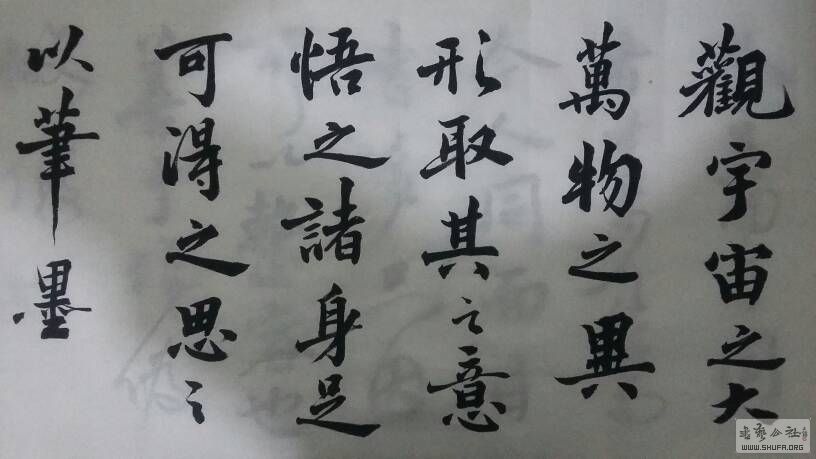 觀宇宙之大
萬物之異
形取其之意
悟之諸身足
可得之思之
以筆墨
WWW.SHUFA.ORG